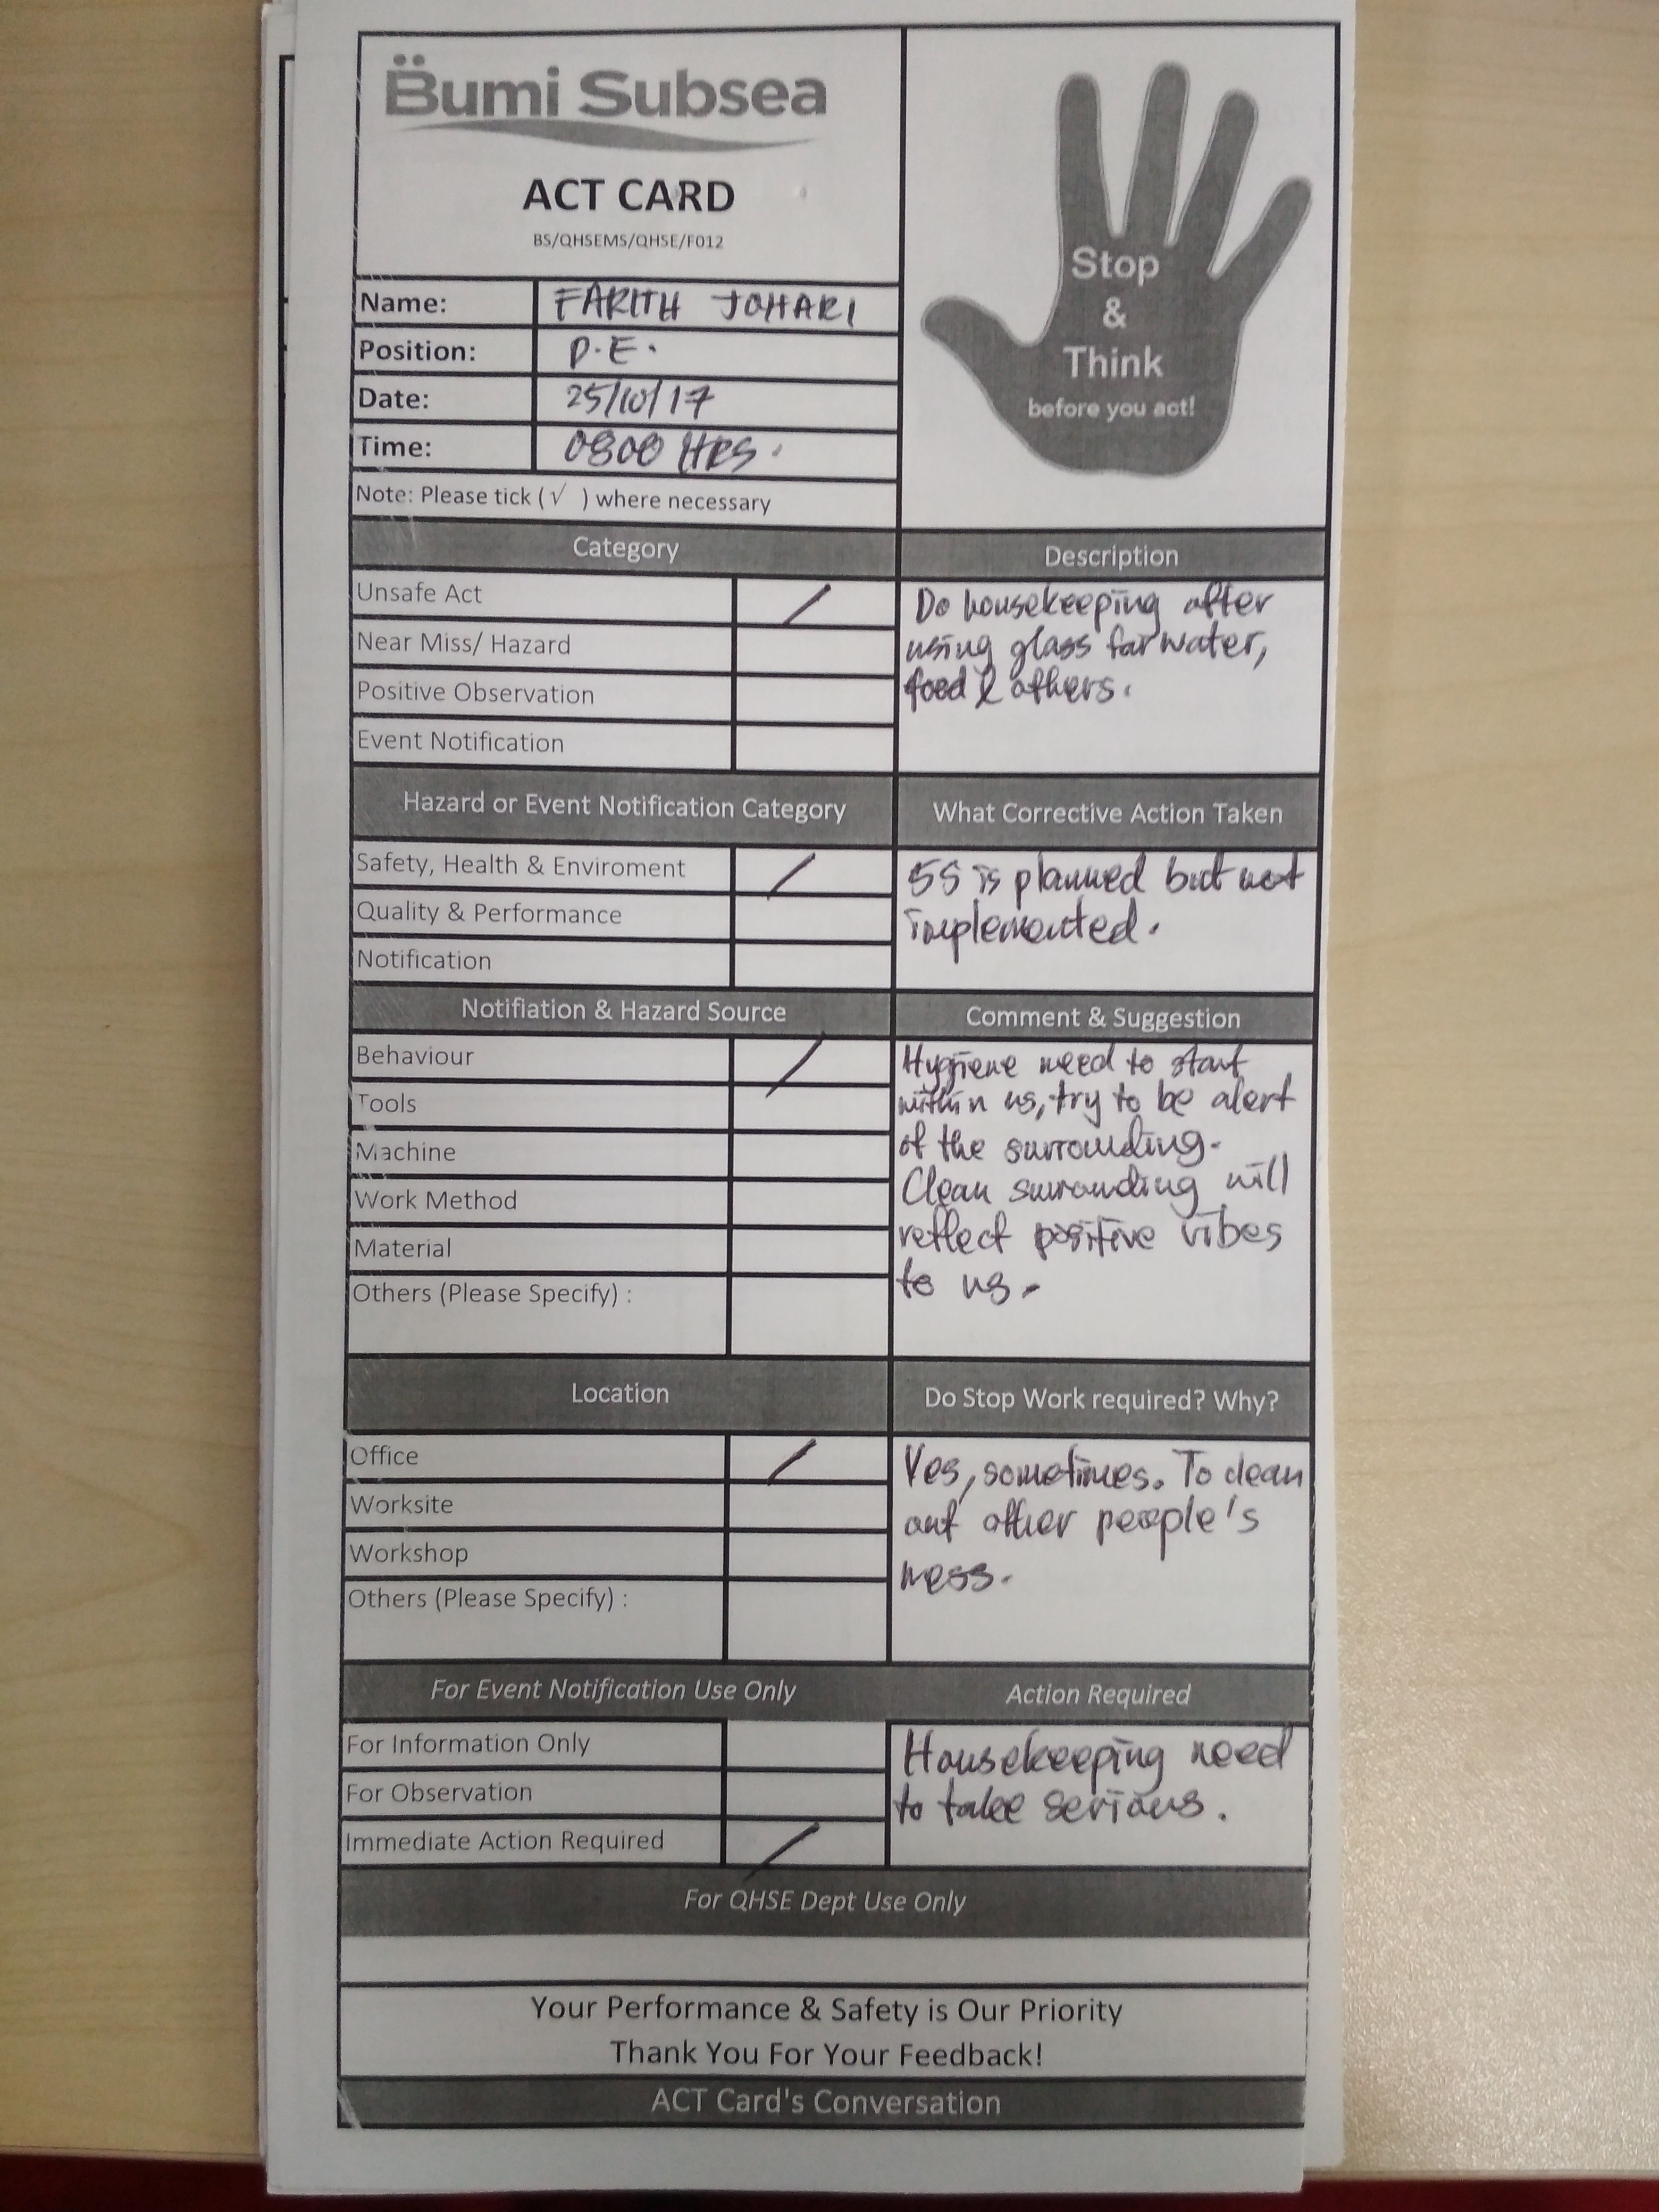 Bumi Subsea
ACT CARD
BS/QHSEMS/QHSE/F012
Stop
&
Think
before you act!
Name: FARITH JOHARI
Position: P.E.
Date: 25/10/17
Time: 0800 HRS.
Note: Please tick (√ ) where necessary
Category
Unsafe Act /
Near Miss/ Hazard
Positive Observation
Event Notification
Description
Do housekeeping after
using glass for water,
food & others.
Hazard or Event Notification Category
Safety, Health & Enviroment /
Quality & Performance
Notification
What Corrective Action Taken
5S is planned but not
implemented.
Notifiation & Hazard Source
Behaviour /
Tools
Machine
Work Method
Material
Others (Please Specify) :
Comment & Suggestion
Hygiene need to start
within us, try to be alert
of the surrounding.
Clean surrounding will
reflect positive vibes
to us.
Location
Office /
Worksite
Workshop
Others (Please Specify) :
Do Stop Work required? Why?
Yes, sometimes. To clean
out other people's
mess.
For Event Notification Use Only
For Information Only
For Observation
Immediate Action Required /
Action Required
Housekeeping need
to take serious.
For QHSE Dept Use Only
Your Performance & Safety is Our Priority
Thank You For Your Feedback!
ACT Card's Conversation